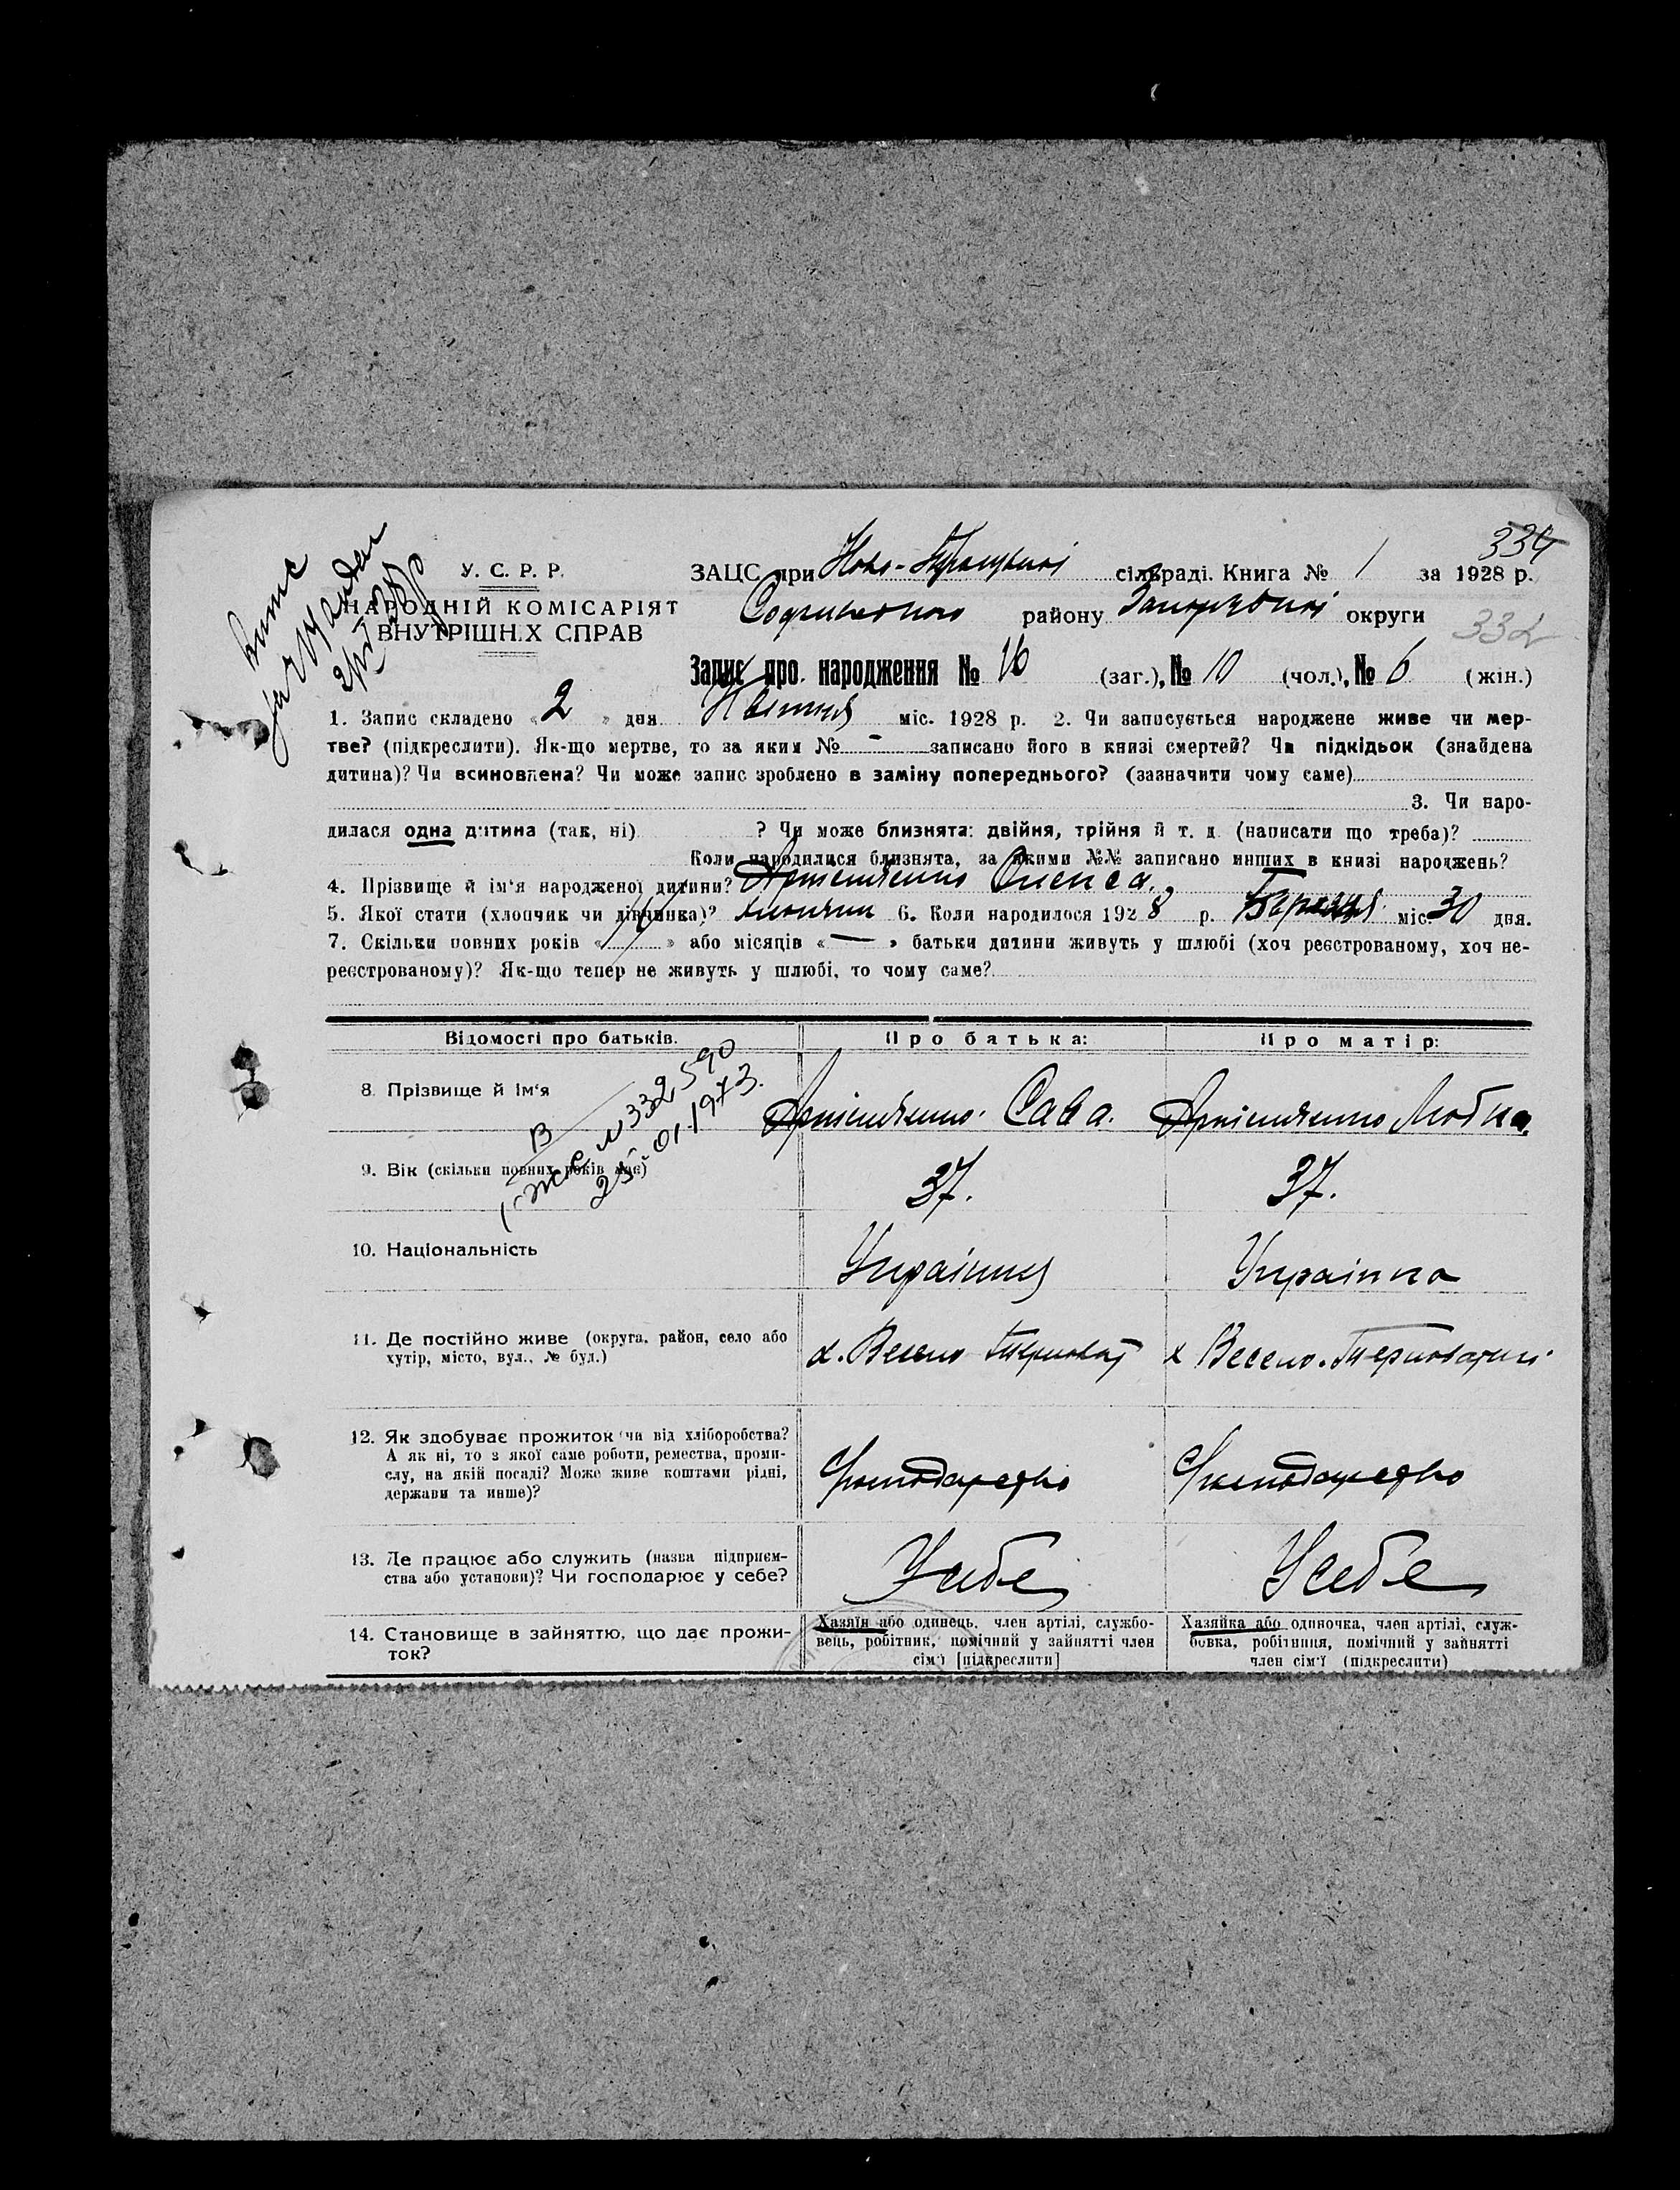 334
У. С. Р. Р.
НАРОДНІЙ КОМІСАРІЯТ
ВНУТРІШНІХ СПРАВ
ЗАЦС при Ново- сільраді. Книга № 1 за 1928 р.
району округи
332
Запис про народження № 16 (заг.), № 10 (чол.), № 6 (жін.)
1. Запис складено « 2 » дня Квітня міс. 1928 р. 2. Чи записується народжене живе чи мер-
тве? (підкреслити). Як-що мертве, то за яким № - записано його в книзі смертей? Чи підкідьок (знайдена
дитина)? Чи всиновлена? Чи може запис зроблено в заміну попереднього? (зазначити чому саме)
3. Чи наро-
дилася одна дитина (так, ні) ? Чи може близнята: двійня, трійня й т. д. (написати що треба)?
Коли народилися близнята, за якими №№ записано инших в книзі народжень?
4. Прізвище й ім'я народженої дитини?
5. Якої стати (хлопчик чи дівчинка)? хлопчик 6. Коли народилося 1928 р. Березня міс. 30 дня.
7. Скільки повних років « » або місяців « — » батьки дитини живуть у шлюбі (хоч реєстрованому, хоч не-
реєстрованому)? Як-що тепер не живуть у шлюбі, то чому саме?
Відомості про батьків. Про батька: Про матір:
8. Прізвище й ім'я Сава. Любка.
В
№ 332590
25.-01-1973.
9. Вік (скільки повних років має) 37. 37.
10. Національність Украінця Украінка
11. Де постійно живе (округа, район, село або
хутір, місто, вул., № буд.) х. Весело Терноват х Весело-Терноватці
12. Як здобуває прожиток (чи від хліборобства?
А як ні, то з якої саме роботи, ремества, проми-
слу, на якій посаді? Може живе коштами рідні,
держави та инше)? Господарство Господарство
13. Де працює або служить (назва підприєм-
ства або установи)? Чи господарює у себе? У себе У себе
14. Становище в зайняттю, що дає прожи-
ток?
Хазяїн або одинець, член артілі, службо-
вець, робітник, помічний у зайнятті член
сім'ї [підкреслити]
Хазяйка або одиночка, член артілі, служ-
бовка, робітниця, помічний у зайнятті
член сім'ї (підкреслити)